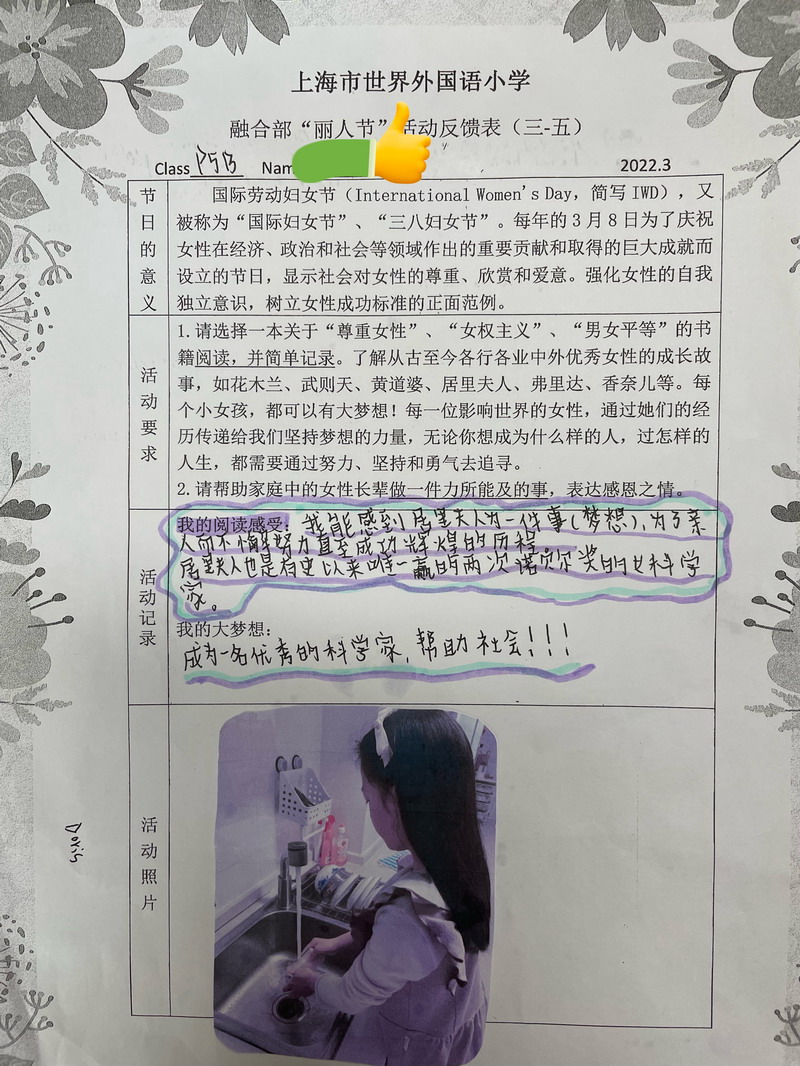 上海市世界外国语小学
融合部“丽人节”活动反馈表（三-五）
Class P5B Nam 2022.3
节日的意义
国际劳动妇女节（International Women's Day，简写 IWD），又
被称为“国际妇女节”、“三八妇女节”。每年的 3 月 8 日为了庆祝
女性在经济、政治和社会等领域作出的重要贡献和取得的巨大成就而
设立的节日，显示社会对女性的尊重、欣赏和爱意。强化女性的自我
独立意识，树立女性成功标准的正面范例。
活动要求
1.请选择一本关于“尊重女性”、“女权主义”、“男女平等”的书
籍阅读，并简单记录。了解从古至今各行各业中外优秀女性的成长故
事，如花木兰、武则天、黄道婆、居里夫人、弗里达、香奈儿等。每
个小女孩，都可以有大梦想！每一位影响世界的女性，通过她们的经
历传递给我们坚持梦想的力量，无论你想成为什么样的人，过怎样的
人生，都需要通过努力、坚持和勇气去追寻。
2.请帮助家庭中的女性长辈做一件力所能及的事，表达感恩之情。
活动记录
我的阅读感受：我能感到居里夫人为一件事(梦想),为了亲
人而不懈努力直至成功辉煌的历程
居里夫人也是有史以来唯一赢的两次诺贝尔奖的女科学
家。
我的大梦想：
成为一名优秀的科学家,帮助社会!!!
活动照片
Doris